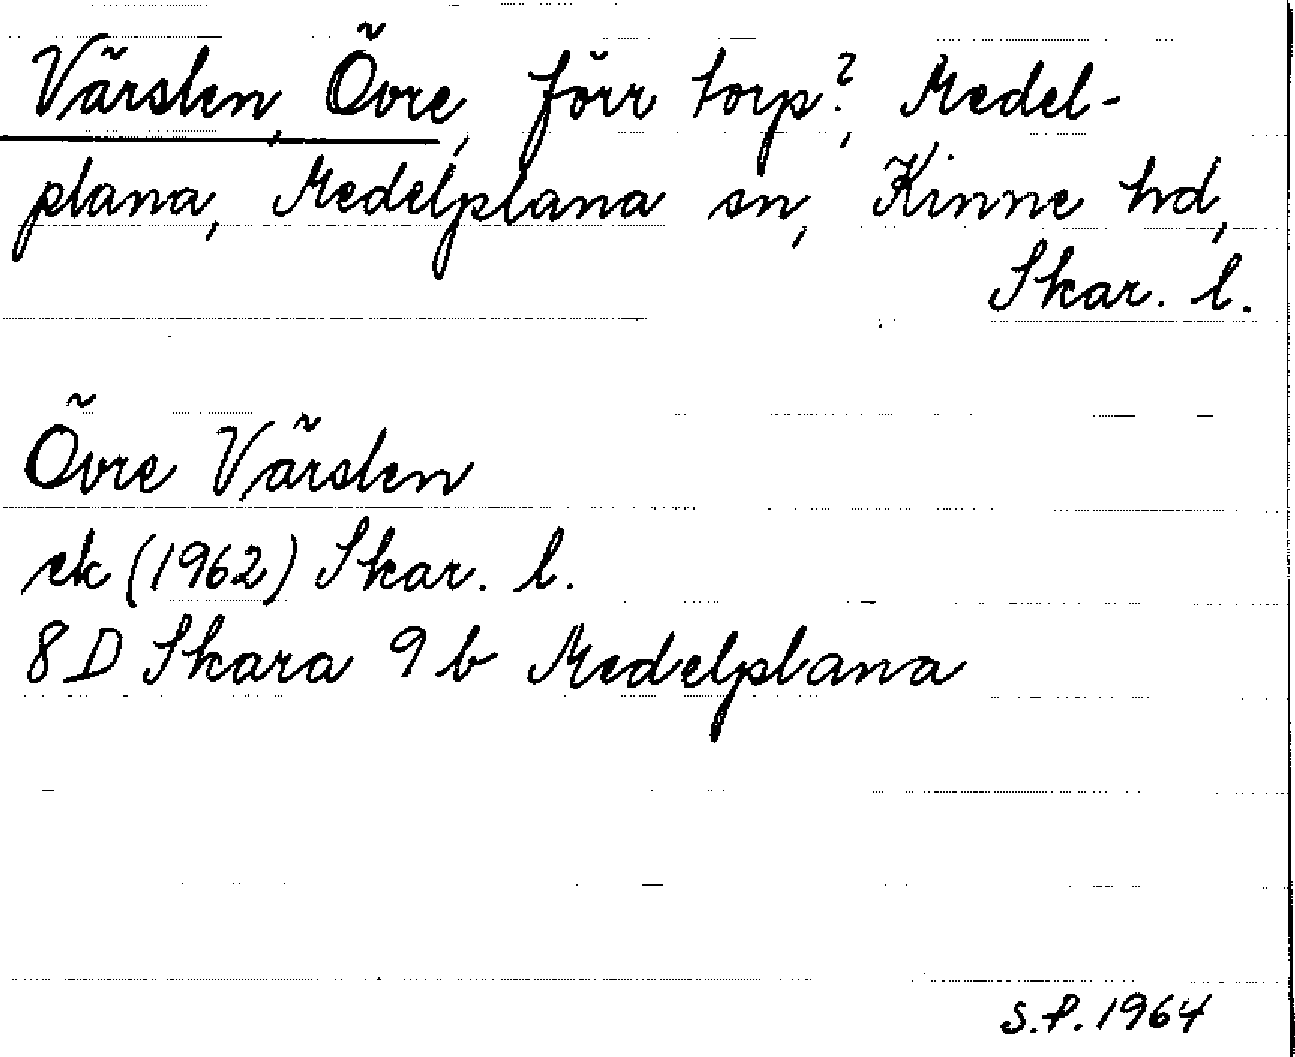 Värslen, Övre, förr torp?, Medel-
plana, Medelplana sn, Kinne hd,
Skar. l.
Övre Värslen
ek (1962) Skar. l.
8D Skara 9b Medelplana
S.P. 1964